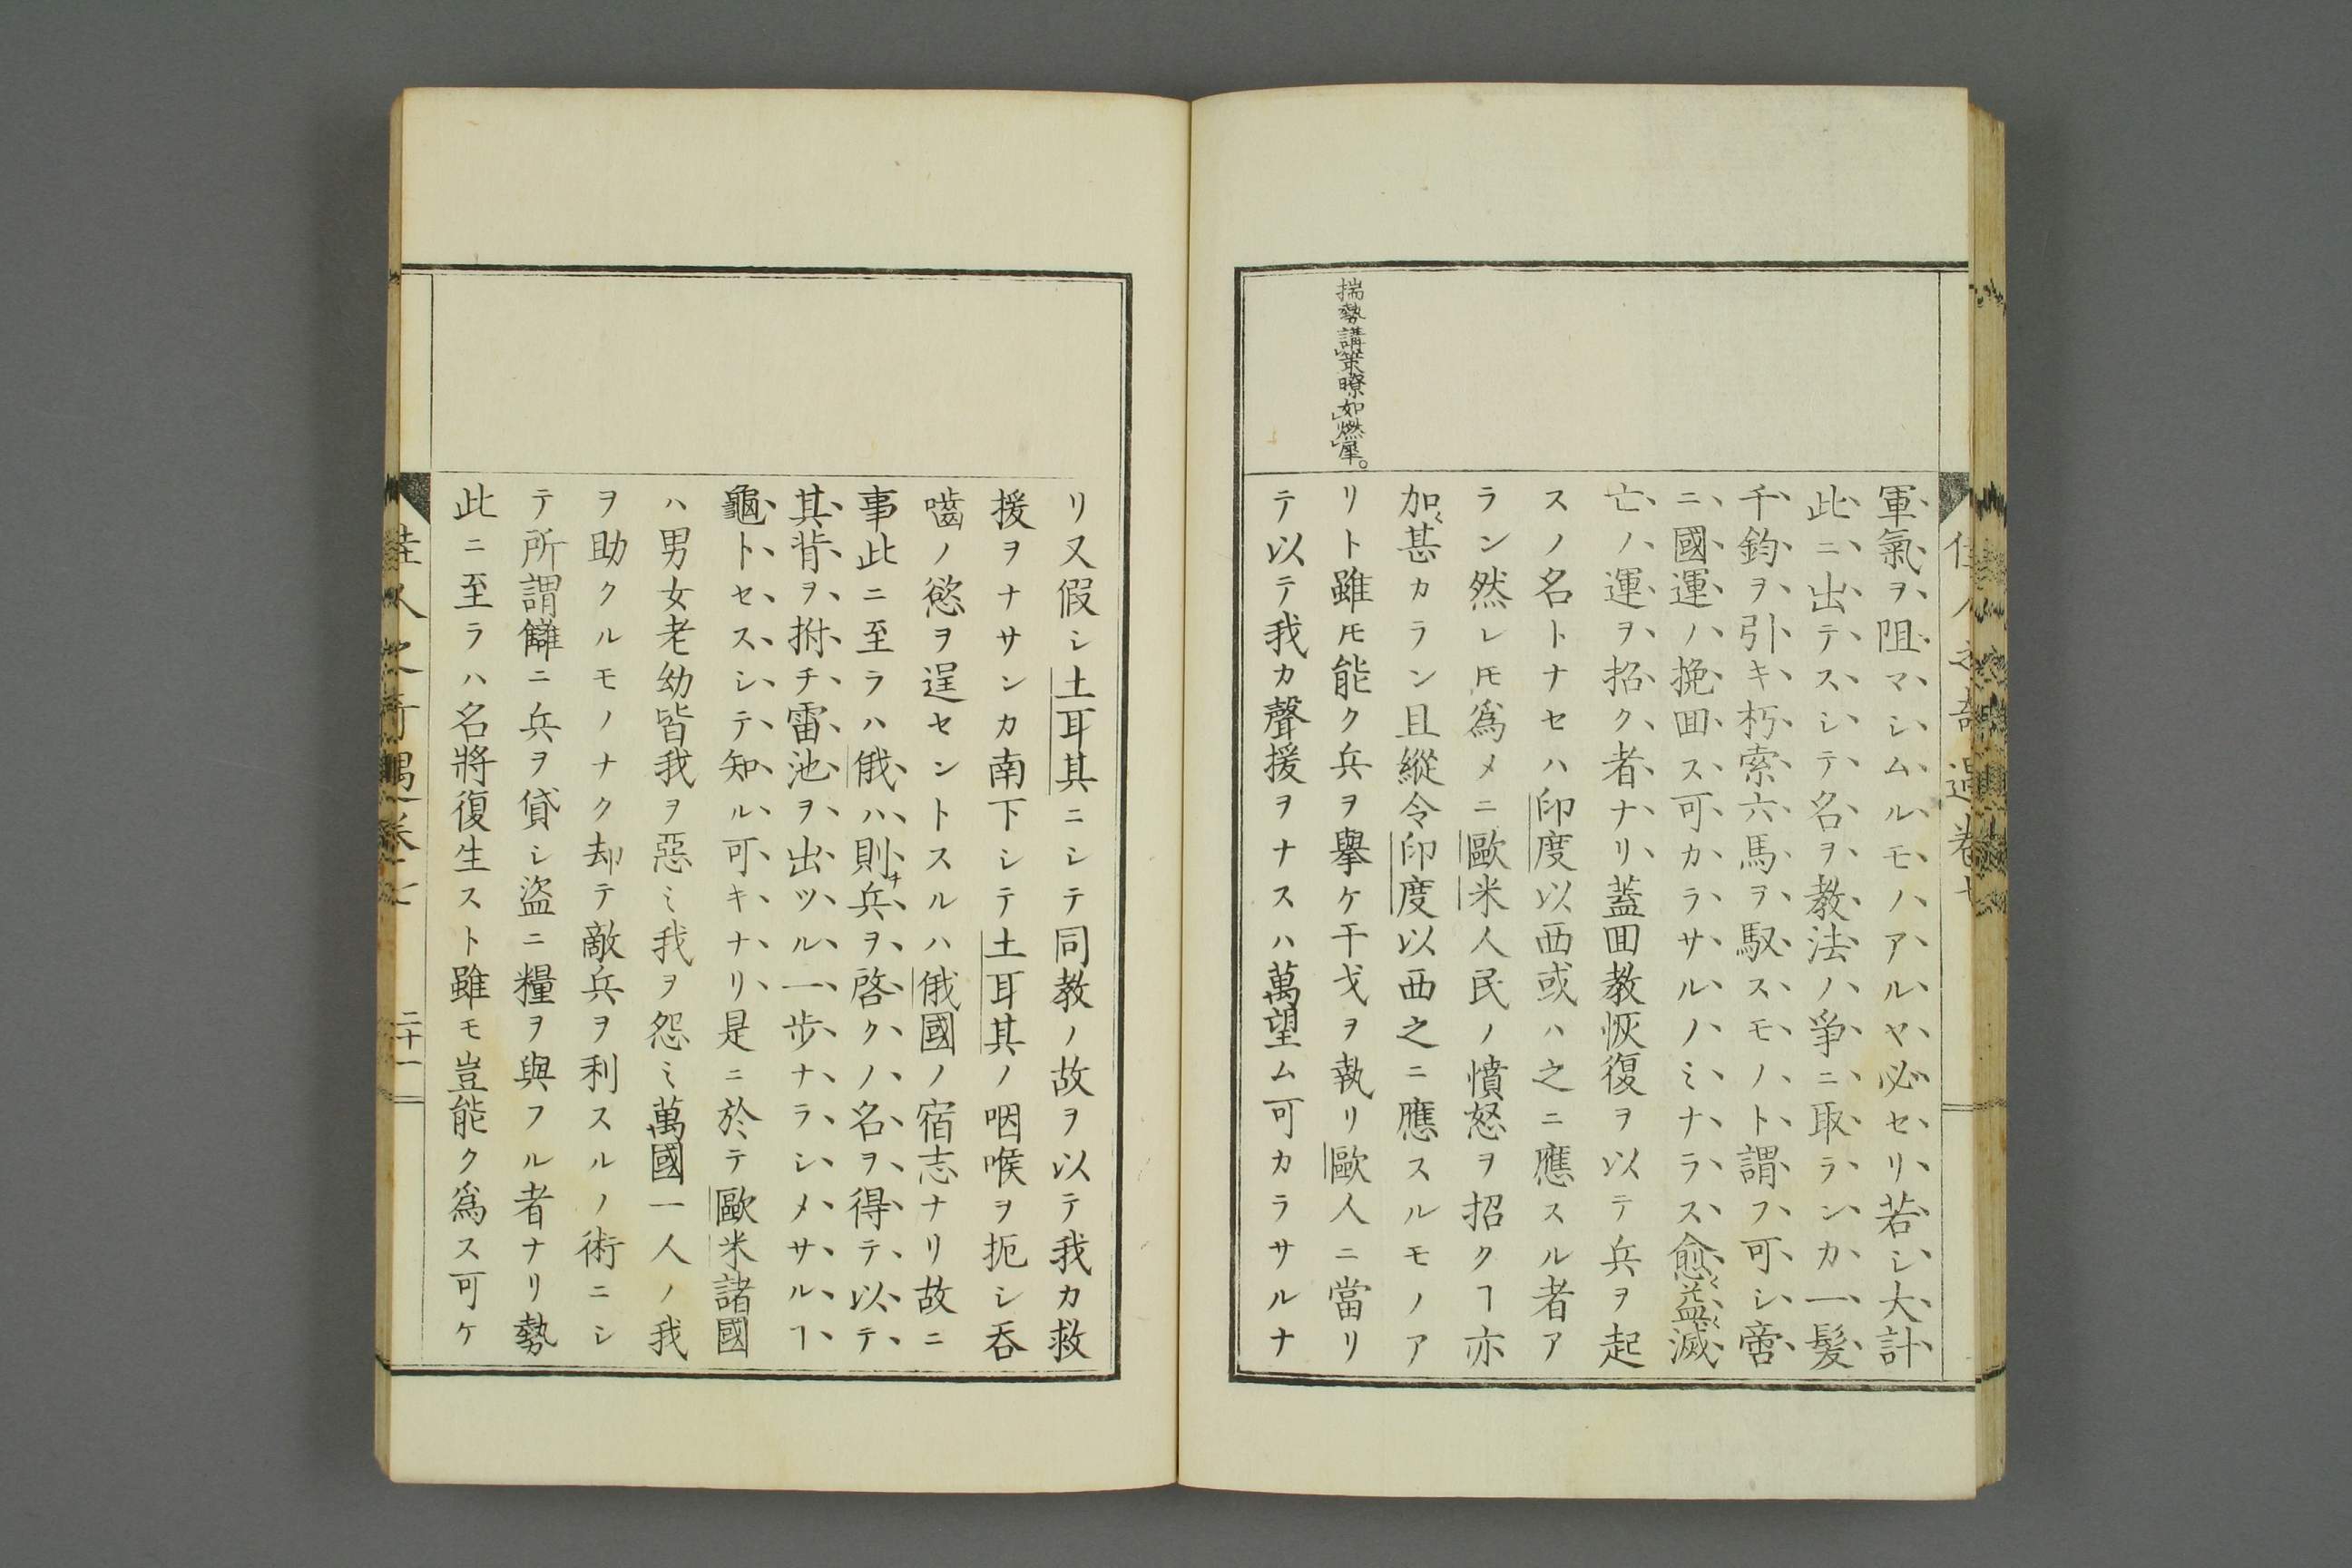 佳人之奇遇卷七
軍氣ヲ阻マシムルモノアルヤ必セリ若シ大計
此ニ出テスシテ名ヲ教法ノ爭ニ取ランカ一髮
千鈞ヲ引キ朽索六馬ヲ馭スモノト謂フ可シ啻
ニ國運ノ挽回ス可カラサルノミナラス愈〻益〻滅
亡ノ運ヲ招ク者ナリ蓋回教恢復ヲ以テ兵ヲ起
スノ名トナセハ印度以西或ハ之ニ應スル者ア
ラン然レ𪜈爲メニ歐米人民ノ憤怒ヲ招クヿ亦
加〻甚カラン且縱令印度以西之ニ應スルモノア
リト雖𪜈能ク兵ヲ擧ケ干戈ヲ執リ歐人ニ當リ
テ以テ我カ聲援ヲナスハ萬望ム可カラサルナ
揣勢講策瞭如燃犀。
リ又假シ土耳其ニシテ同教ノ故ヲ以テ我カ救
援ヲナサンカ南下シテ土耳其ノ咽喉ヲ扼シ呑
噛ノ慾ヲ逞セントスルハ俄國ノ宿志ナリ故ニ
事此ニ至ラハ俄ハ則チ兵ヲ啓クノ名ヲ得テ以テ
其背ヲ拊チ雷池ヲ出ツル一步ナラシメサルヿ
龜トセスシテ知ル可キナリ是ニ於テ歐米諸國
ハ男女老幼皆我ヲ惡ミ我ヲ怨ミ萬國一人ノ我
ヲ助クルモノナク却テ敵兵ヲ利スルノ術ニシ
テ所謂讎ニ兵ヲ貸シ盜ニ糧ヲ與フル者ナリ勢
此ニ至ラハ名將復生スト雖モ豈能ク爲ス可ケ
佳人之奇遇卷七
二十一